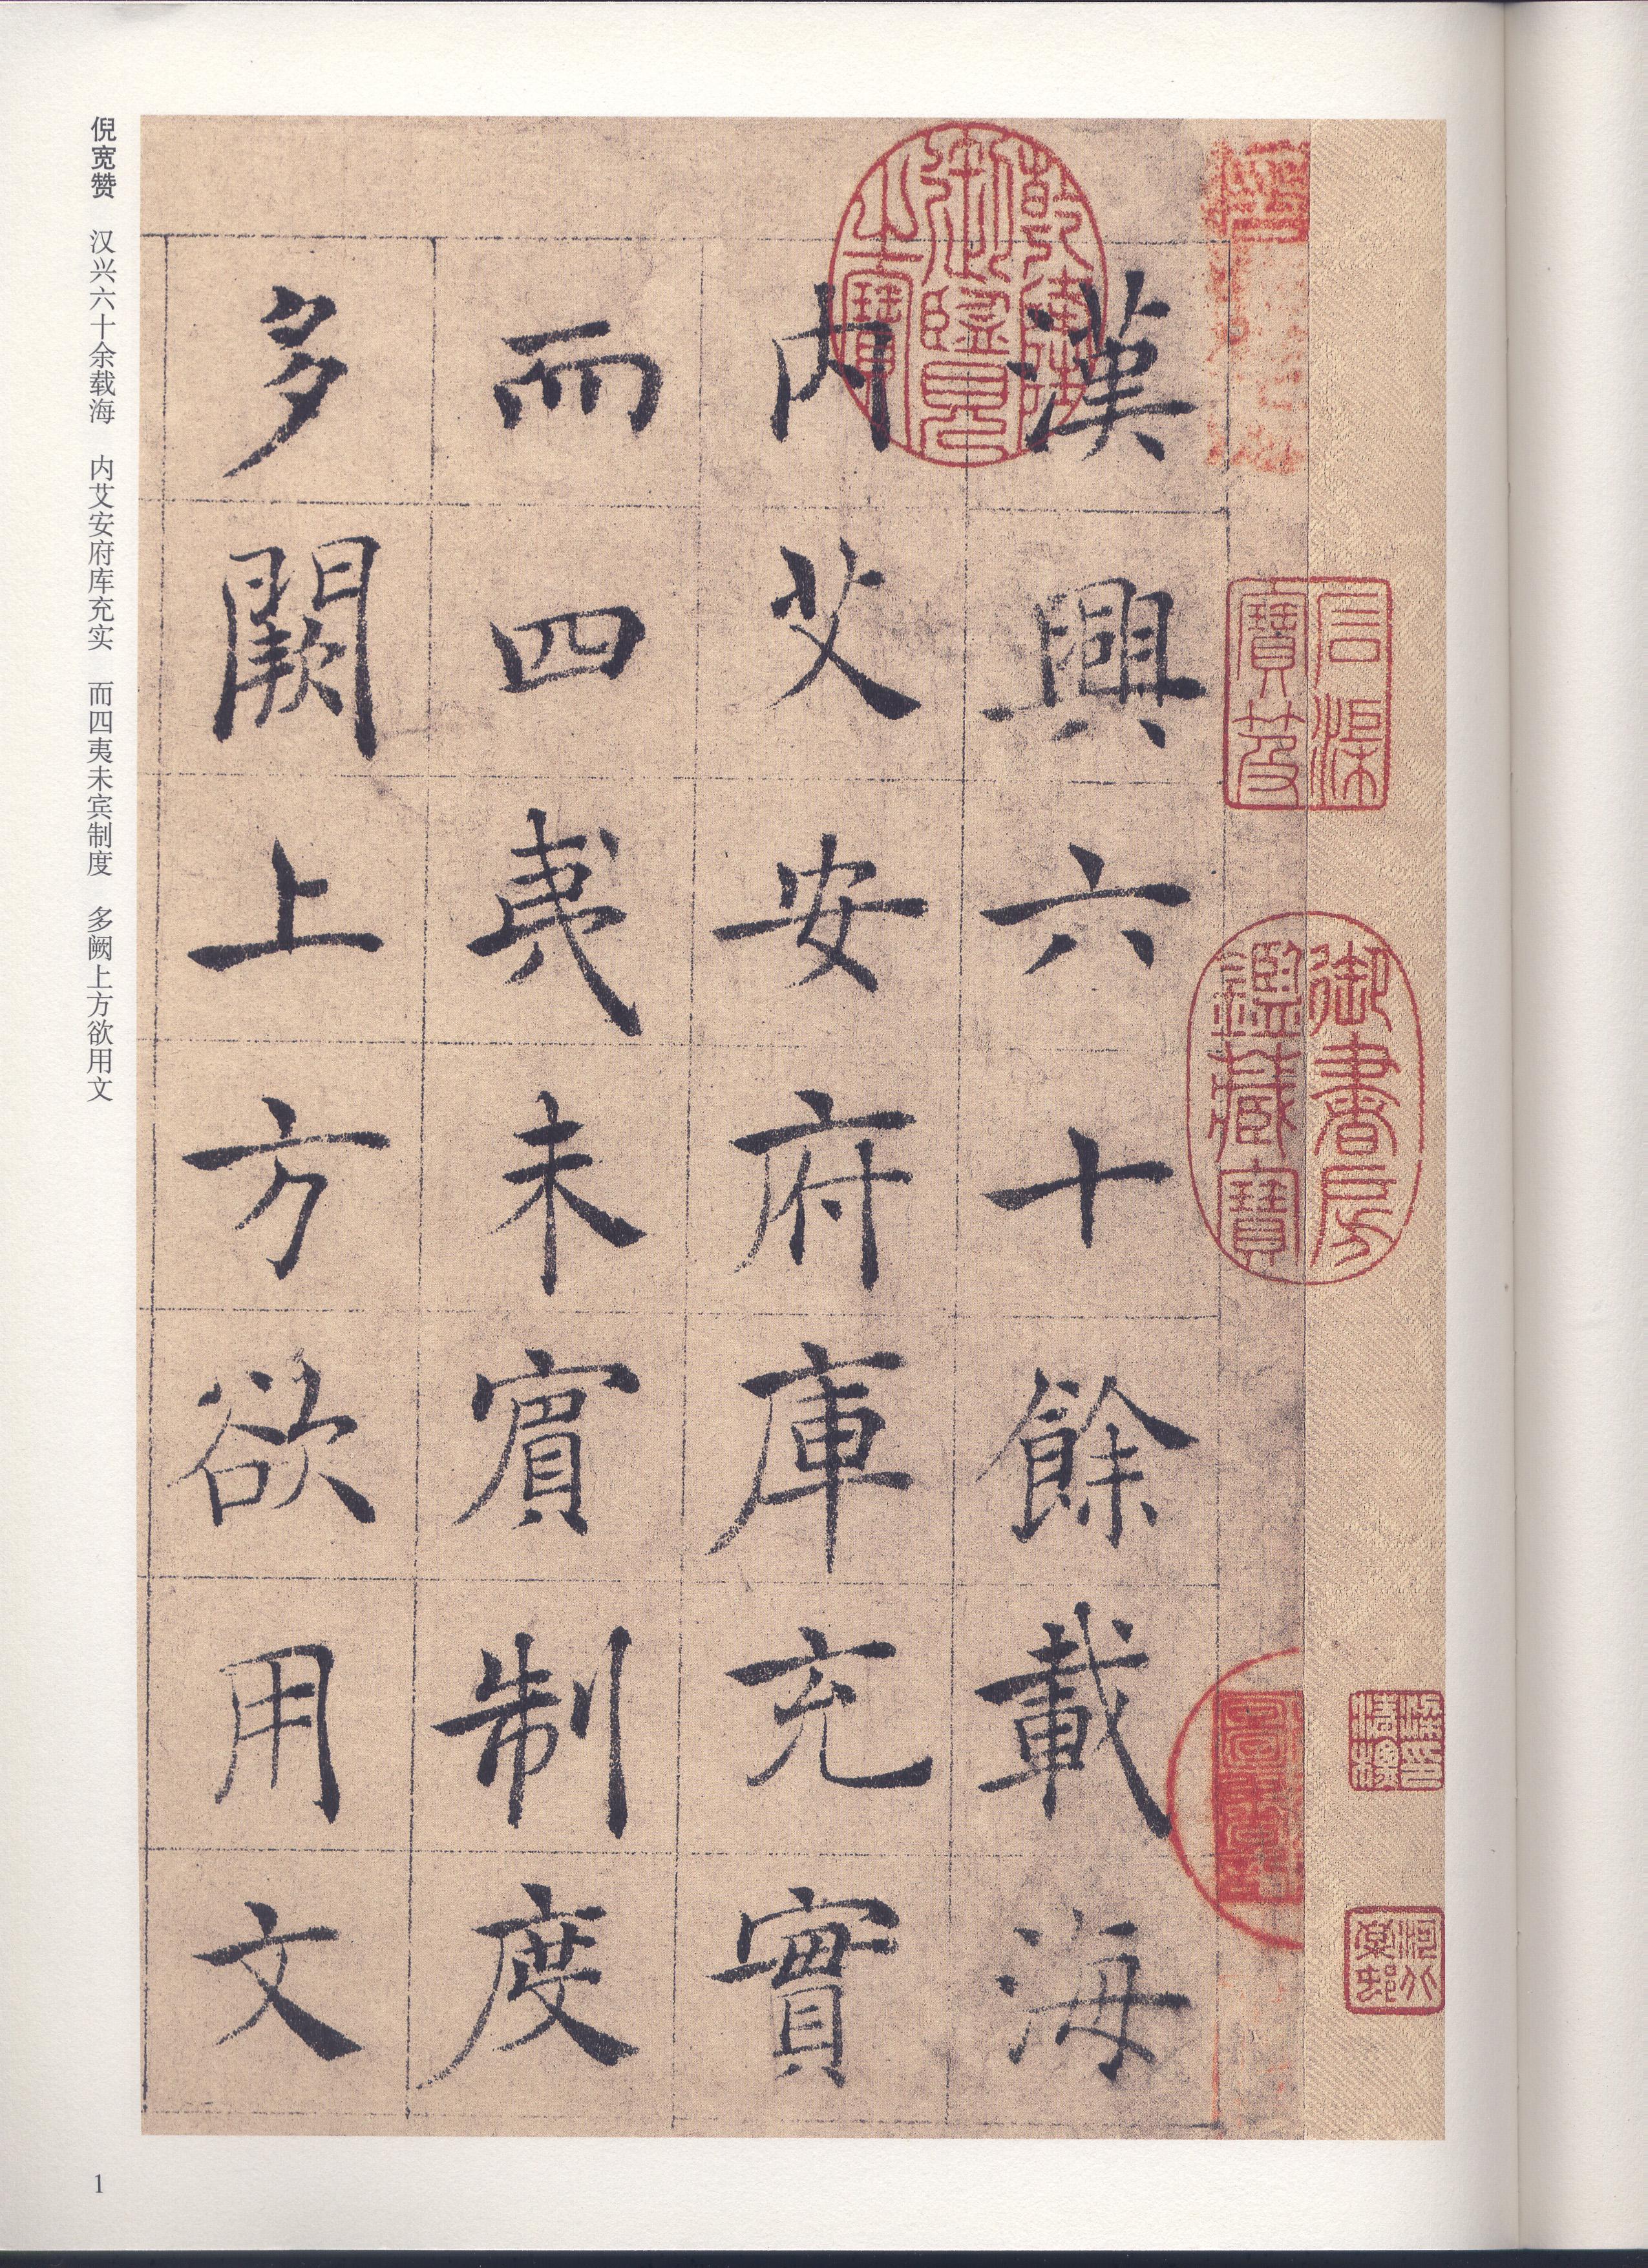 漢興六十餘載海
内艾安府庫充實
而四夷未賓制度
多闕上方欲用文
乾隆御覽之寶
石渠寶笈
御書房鑑藏寶
倪宽赞 汉兴六十余载海 内艾安府库充实 而四夷未宾制度 多阙上方欲用文
1